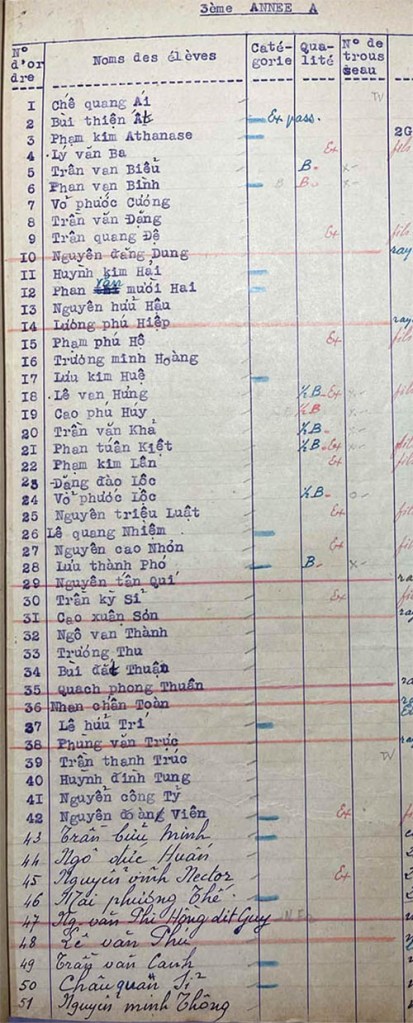 3ème ANNEE A
N° d'ordre Noms des élèves Catégorie Qualité N° de trousseau
1 Chế quang Ái TV
2 Bùi thiện Ex pass.
3 Phạm kim Athanase 2G
4 Lý văn Ba Ex fils
5 Trần van Biểu B- x-
6 Phan van Bình B B- x-
7 Vỏ phước Cương
8 Trần văn Đặng
9 Trần quang Đệ Ex fils
10 Nguyễn đăng Dung ray
11 Huỳnh kim Hải
12 Phan văn mười Hai
13 Nguyễn hữu Hậu
14 Lương phú Hiệp ray
15 Phạm phú Hồ Ex fils
16 Trương minh Hoàng
17 Lưu kim Huệ
18 Lê van Hưng ½B-Ex x- fils
19 Cao phú Huy ½B x-
20 Trần văn Khả ½B- x-
21 Phan tuấn Kiệt ½B-Ex x-
22 Phạm kim Lân Ex fils
23 Đặng đào Lộc
24 Vỏ phước Lộc ½B- o-
25 Nguyễn triệu Luật Ex fils
26 Lê quang Nhiệm
27 Nguyễn cao Nhơn Ex fils
28 Lưu thành Phó B- x-
29 Nguyễn tấn Quí ra
30 Trần kỳ Sĩ Ex fil
31 Cao xuân Sơn ray
32 Ngô van Thành
33 Trương Thu
34 Bùi đắc Thuận
35 Quach phong Thuần ra
36 Nhan chấn Toàn
37 Lê hữu Trí
38 Phùng văn Trực
39 Trần thanh Trúc TV
40 Huynh đình Tung
41 Nguyễn công Tỷ
42 Nguyễn Viên Ex fil
43 Trần bửu Minh
44 Ngô đức Huấn
45 Nguyễn vĩnh Hector Ex
46 Mai phương Thế
47 Ng. văn Phi Hong dit Guy
48 Lê văn Phú
49 Trần văn Canh
50 Châu quan Tỉ
51 Nguyễn minh Thông